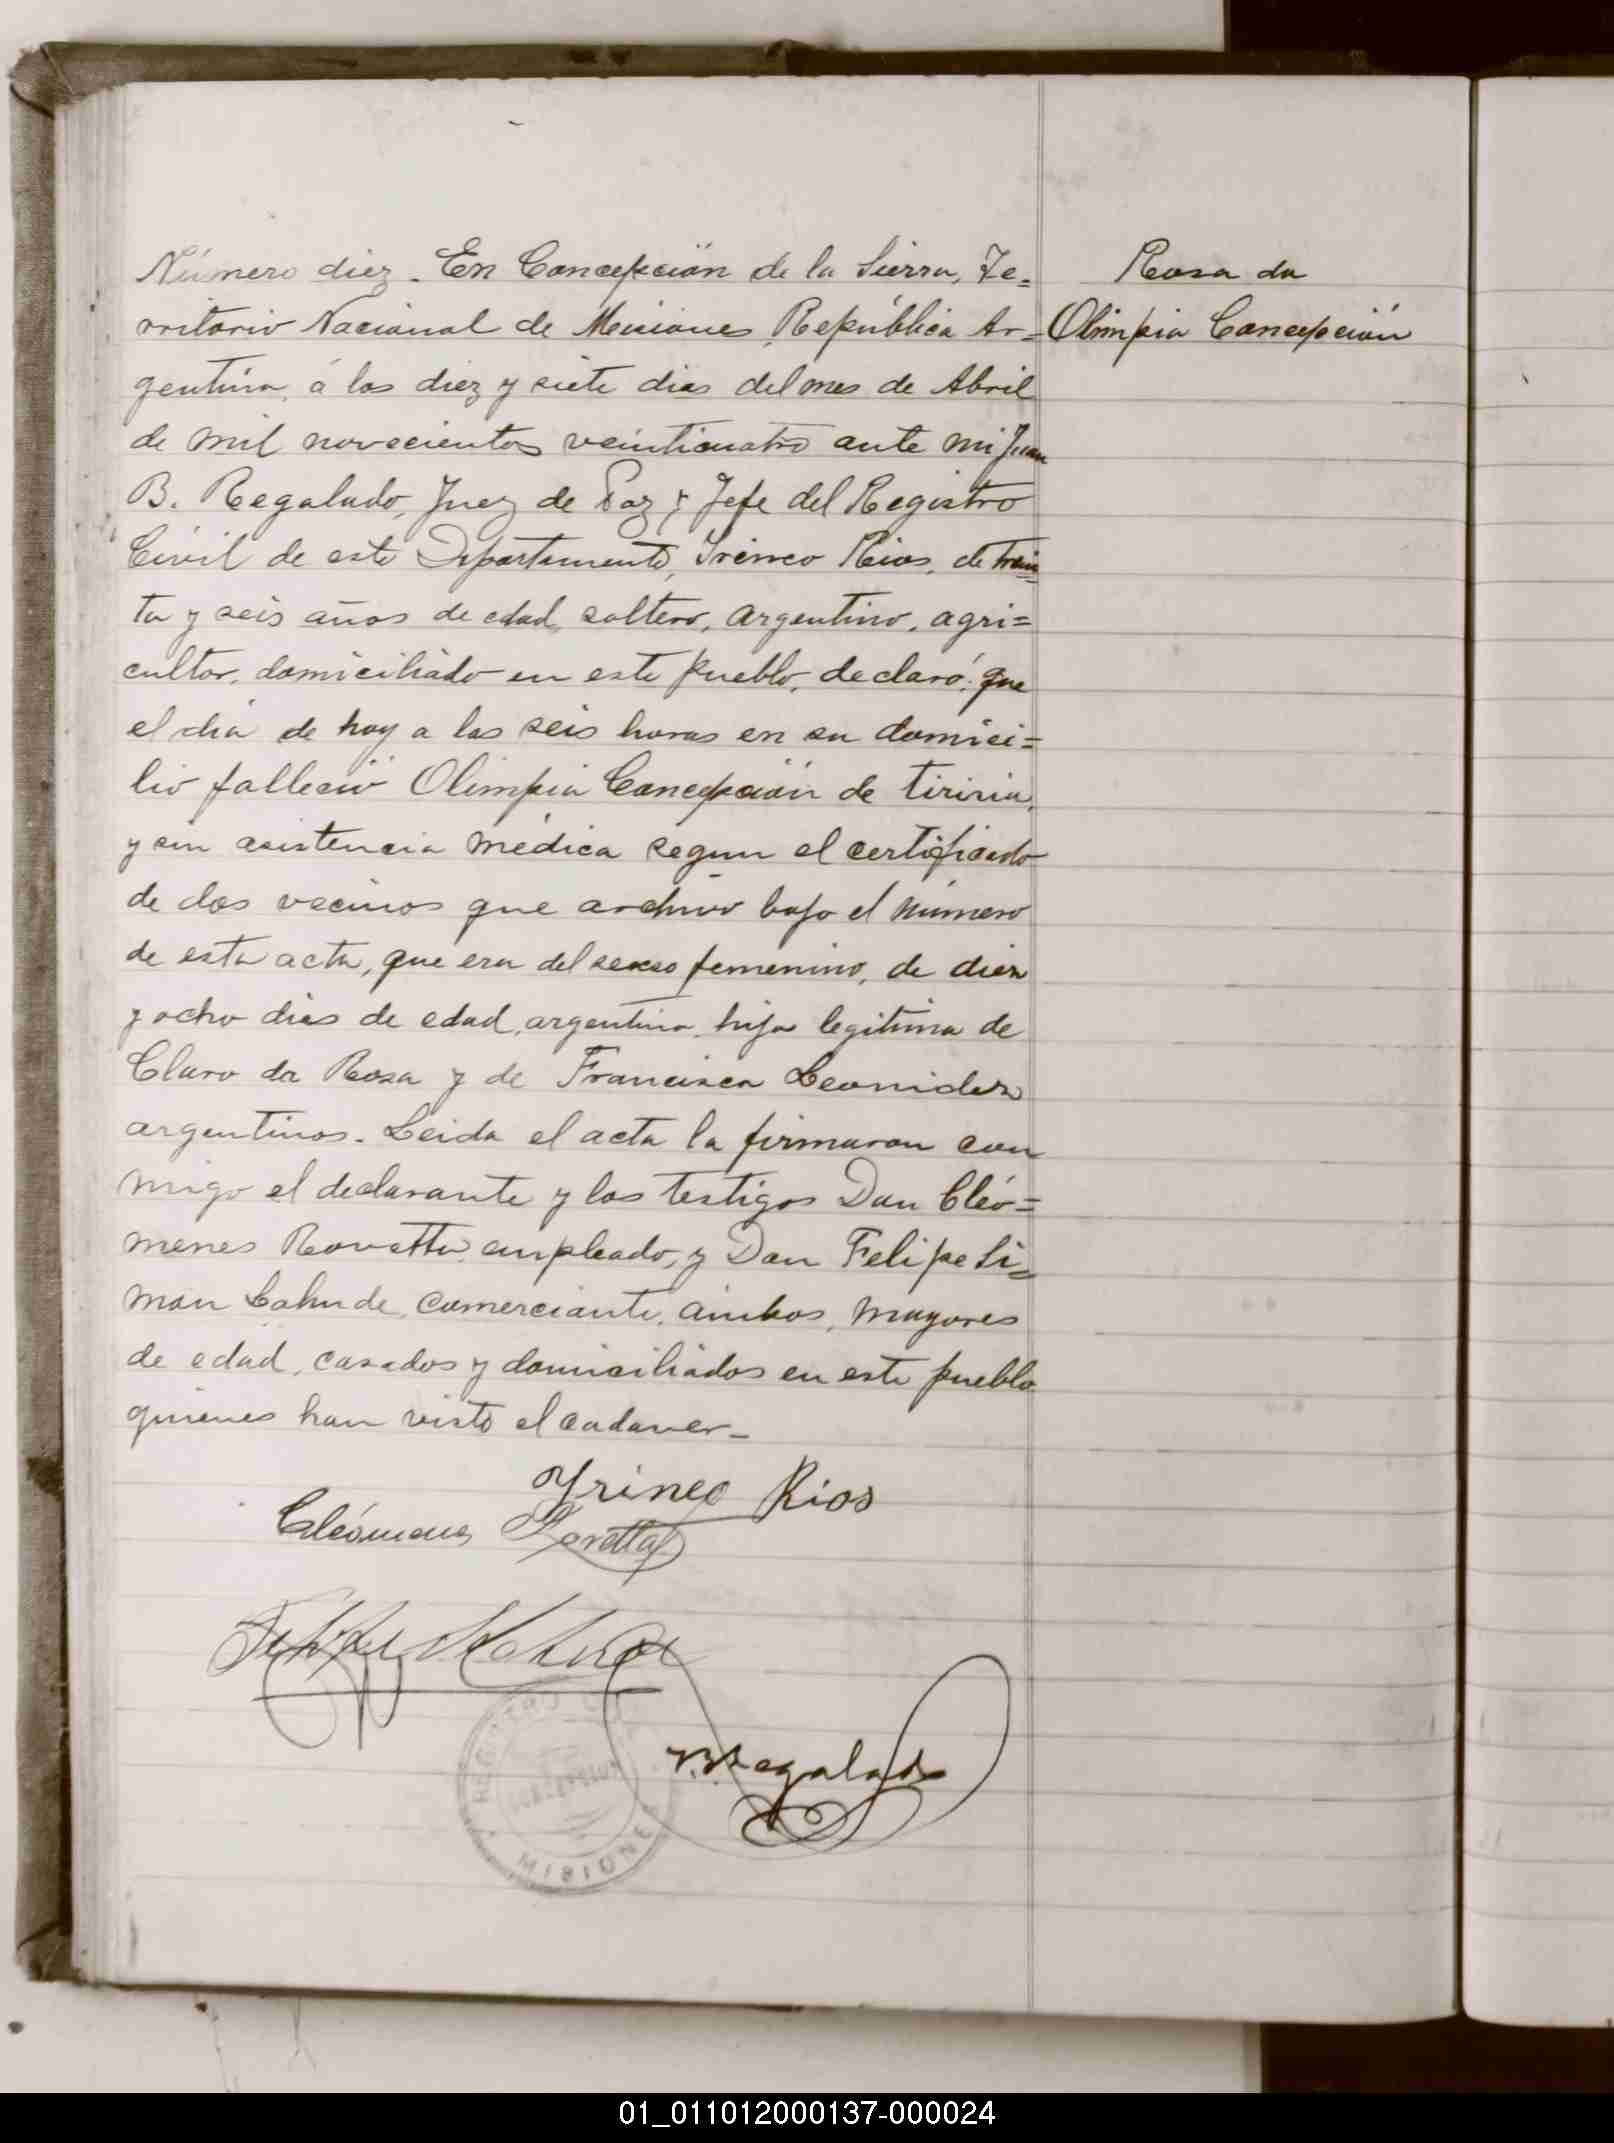 Número diez. En Concepción de la Sierra, Te=
rritorio Nacional de Misiones, República Ar=
gentina, á los diez y siete dias del mes de Abril
de mil novecientos veinticuatro ante mi Juan
B. Regalado, Juez de Paz y Jefe del Registro
Civil de este Departamento, Irineo Rios, de trein=
ta y seis años de edad, soltero, argentino, agri=
cultor, domiciliado en este pueblo, declaró: que
el dia de hoy a las seis horas en su domici=
lio falleció Olimpia Concepción de tiricia,
y sin asistencia médica segun el certificado
de dos vecinos que archivo bajo el número
de esta acta, que era del sexso femenino, de diez
y ocho dias de edad, argentina, hija legitima de
Claro da Rosa y de Francisca Leonidez
argentinos. Leida el acta la firmaron con
migo el declarante y los testigos Don Cleó=
menes Rovetta, empleado, y Don Felipe Si=
mon, comerciante, ambos, mayores
de edad, casados y domiciliados en este pueblo
quienes han visto el cadaver_
Rosa da
Olimpia Concepción
Yrineo Rios
Cleómenes Rovetta
Felipe
REGISTRO
CONCEPCION
MISIONES
J.B. Regalado
01_011012000137-000024